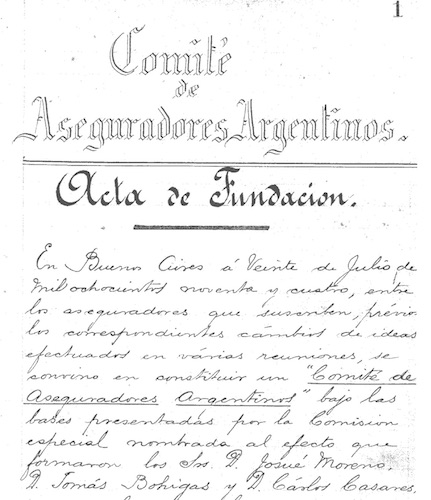 1
Comité
de
Aseguradores Argentinos.
Acta de Fundacion.
En Buenos Aires á Veinte de Julio de
mil ochocientos noventa y cuatro, entre
los aseguradores que suscriben, prévio
los correspondientes cámbios de ideas
efectuados en várias reuniones, se
convino en constituir un "Comité de
Aseguradores Argentinos" bajo las
bases presentadas por la Comision
especial nombrada al efecto que
formaron los Sres. D. Josué Moreno,
D. Tomás Bohigas y D. Cárlos Casares,